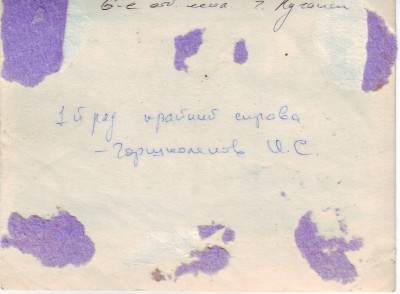 6-е отд. г. Луганск
1й ряд крайний справа
– Горшколепов И.С.